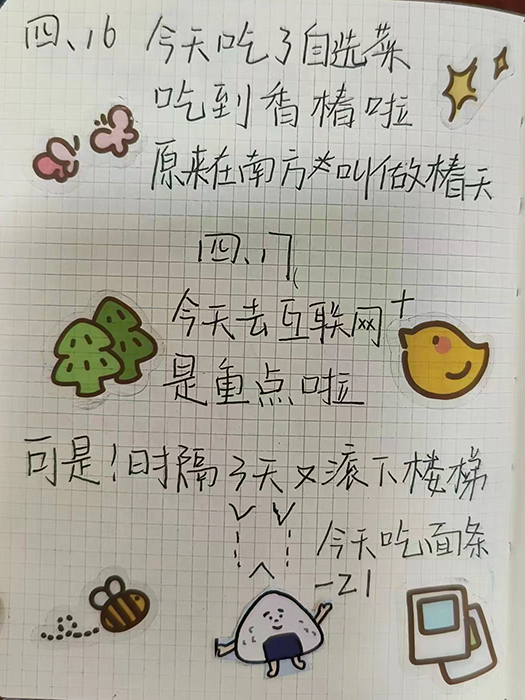 四、16 今天吃了自选菜
吃到香椿啦
原来在南方叫做椿天
四、17
今天去互联网+
是重点啦
可是！时隔3天又滚下楼梯
今天吃面条
-21